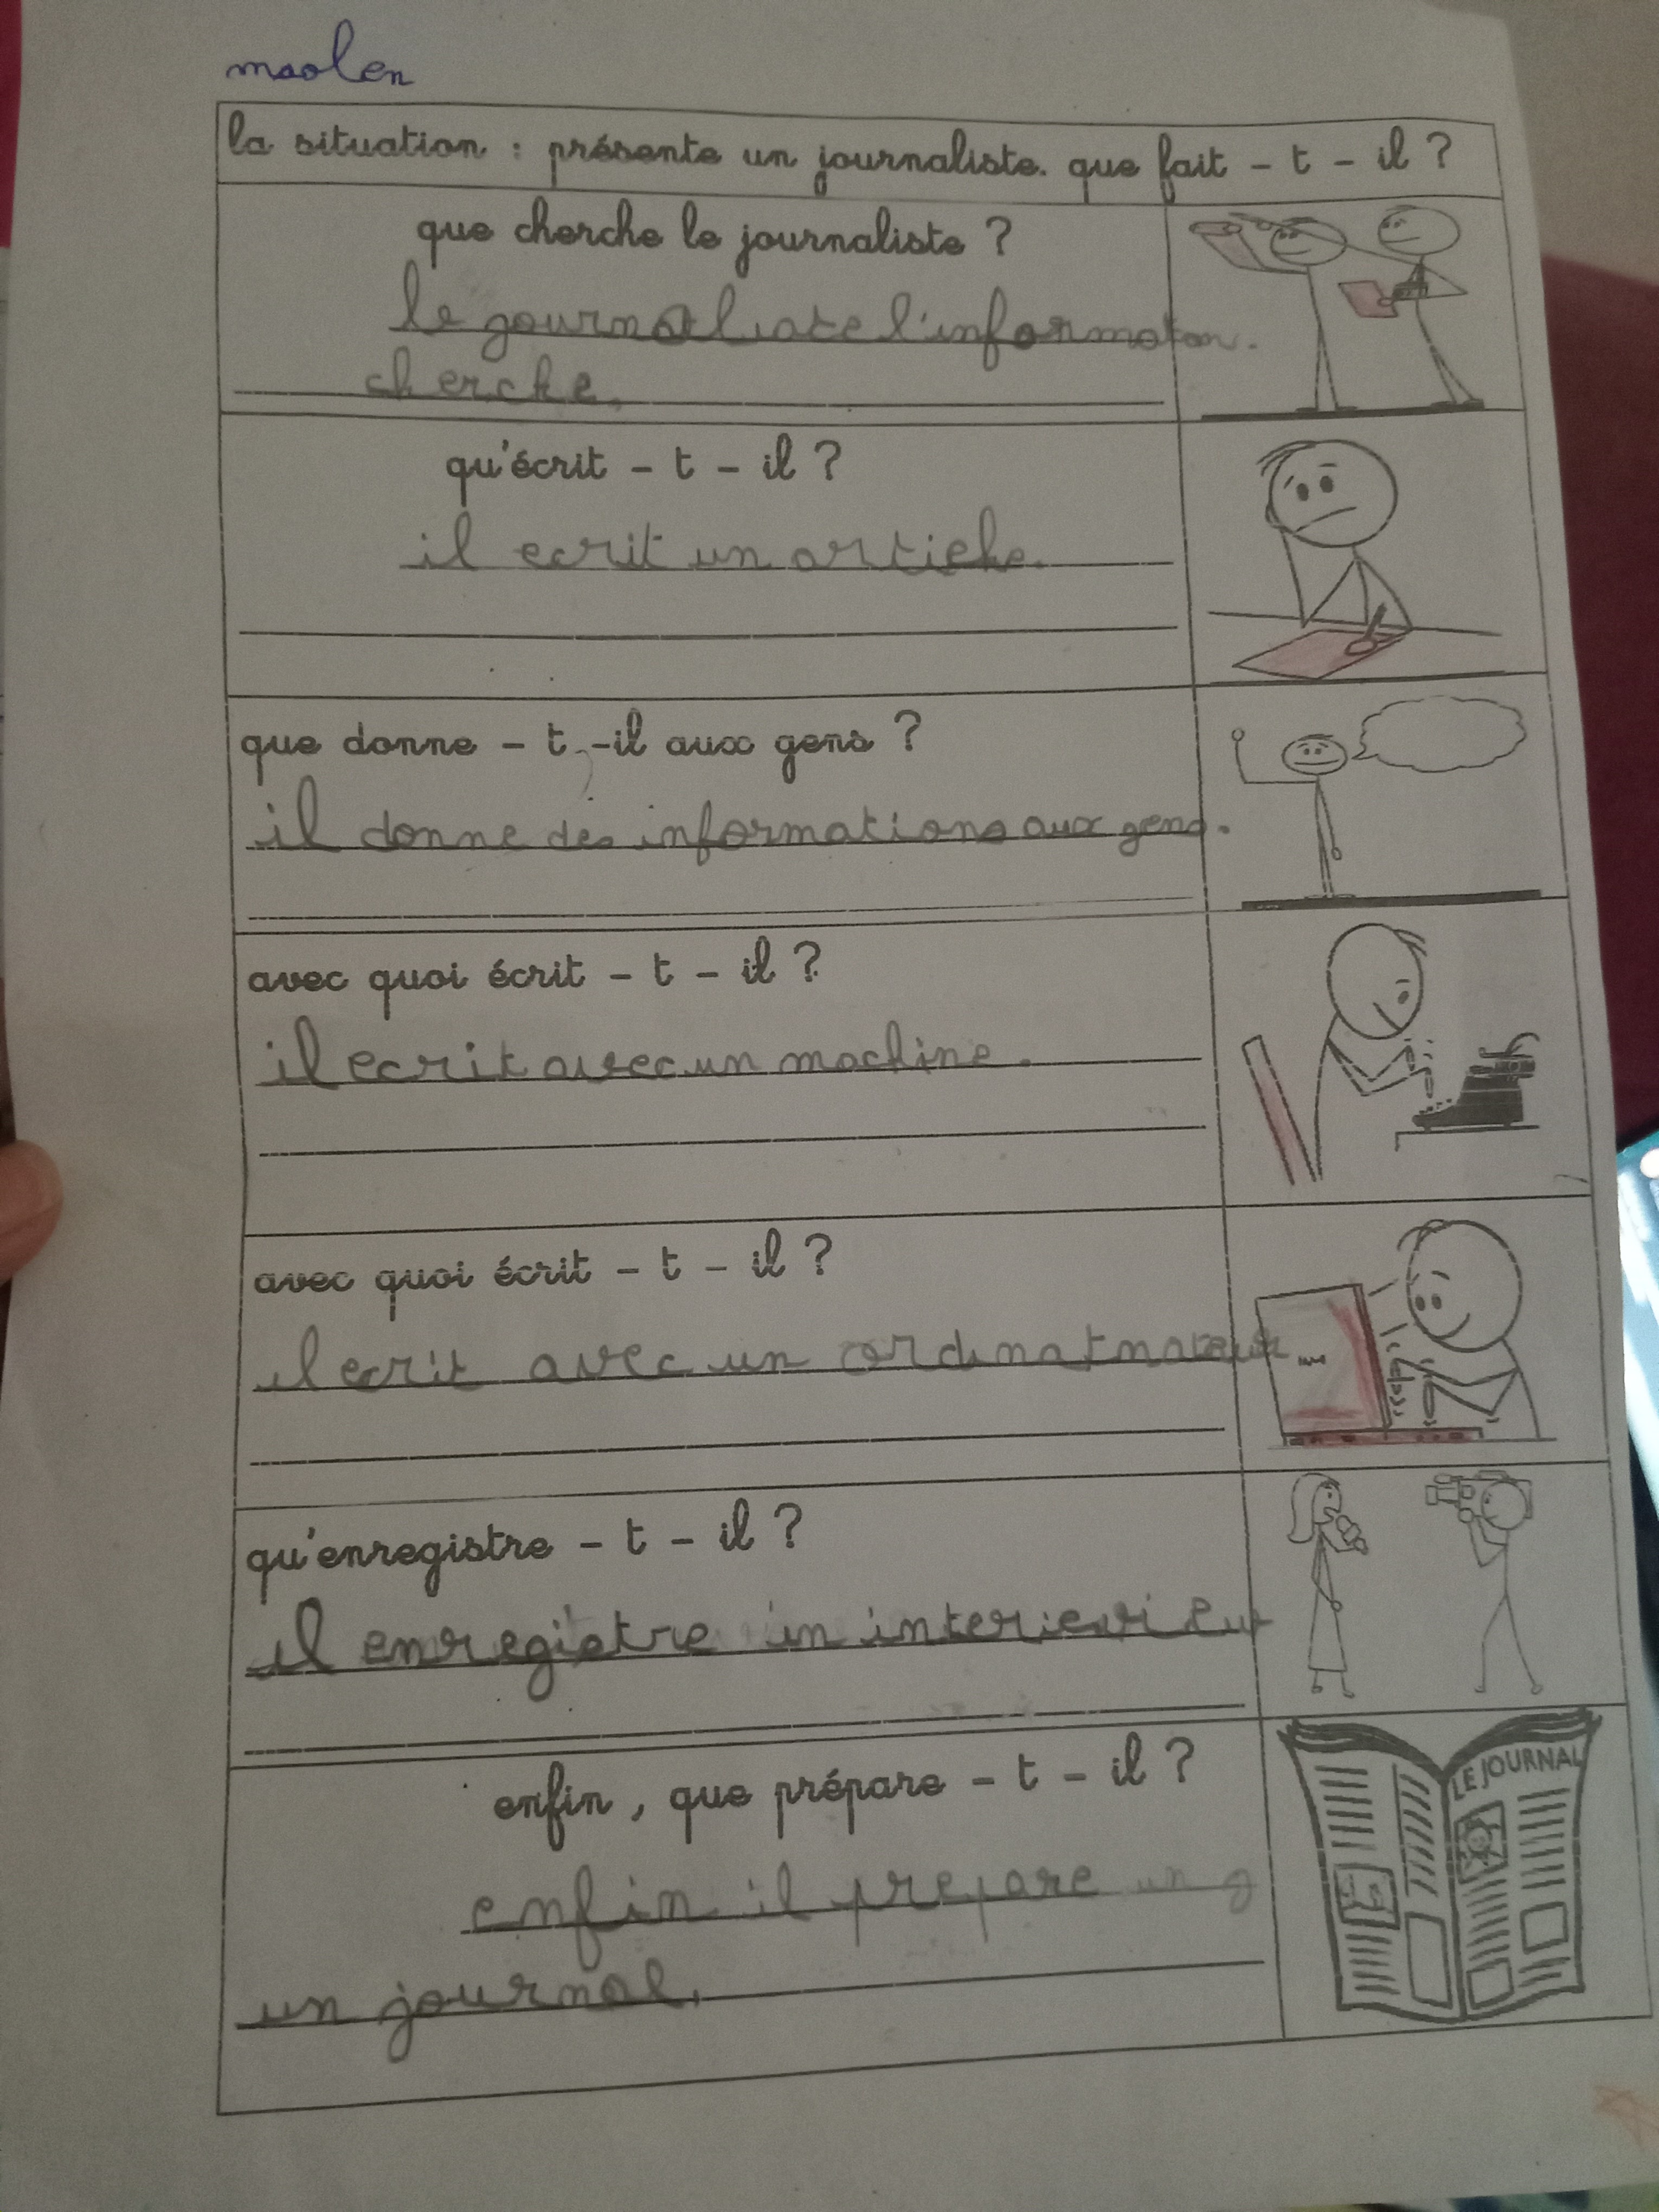 maolen
la situation : présente un journaliste. que fait - t - il ?
que cherche le journaliste ?
le journaliste l'informaton.
cherche.
qu'écrit - t - il ?
il ecrit un article.
que donne - t -il aux gens ?
il donne des informations aux gens.
avec quoi écrit - t - il ?
il ecrit avec un machine.
avec quoi écrit - t - il ?
il ecrit avec un
qu'enregistre - t - il ?
il enregistre in
enfin , que prépare - t - il ?
enfin il prepare un g
un journal.
LE JOURNAL